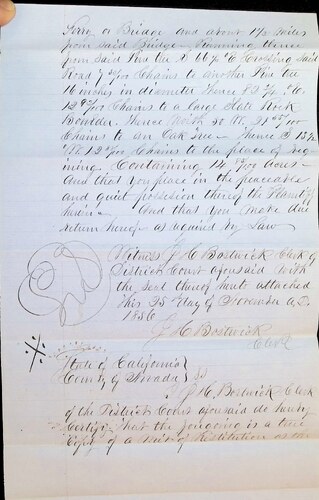 Ferry or Bridge and about 1½ miles
from said Bridge, Running thence
from said Pine tree S 66½ E Crossing said
Road 7 Chains to another Pine tree
16 inches in diameter Thence S 2 W
12 Chains to a large Slate Rock
Bowlder. Thence North 30 W. 21
Chains to an Oak tree – Thence S 15½
12 Chains to the place of beg
ining. Containing 14 acres –
And that you place in the peaceable
and quiet possession thereof the Plaintiff
herein – And that you make due
return hereof as required by Law
Witness J H Bostwick Clerk of
District Court aforesaid with
the seal thereof hereto attached
this 25 day of November A.D.
1856
J H Bostwick
Clerk
State of California
County of Nevada } SS
I J H Bostwick Clerk
of the District Court aforesaid do hereby
Certify that the foregoing is a true
Copy of a Writ of Restitution as the